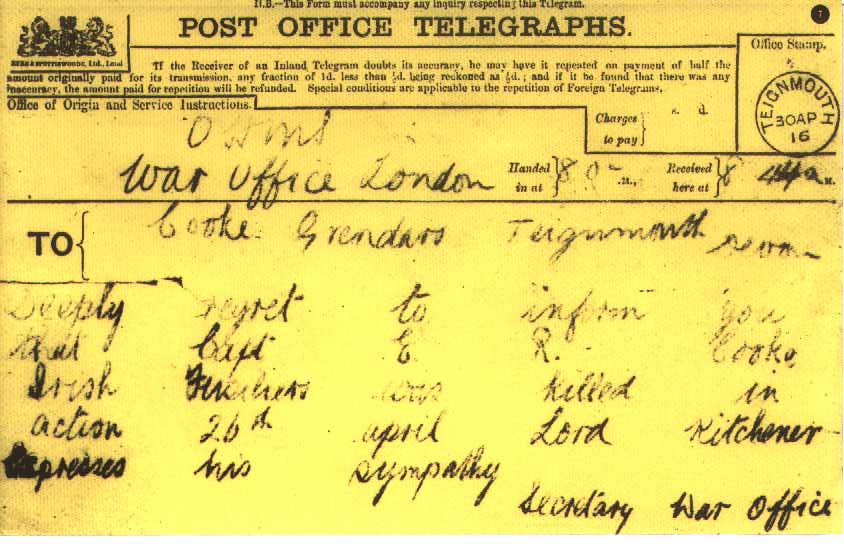 N.B.—This Form must accompany any inquiry respecting this Telegram.
POST OFFICE TELEGRAPHS.
7
EYRE & SPOTTISWOODE, Ltd., Lond
If the Receiver of an Inland Telegram doubts its accuracy, he may have it repeated on payment of half the
amount originally paid for its transmission, any fraction of 1d. less than ½d. being reckoned as ½d.; and if it be found that there was any
inaccuracy, the amount paid for repetition will be refunded. Special conditions are applicable to the repetition of Foreign Telegrams.
Office of Origin and Service Instructions.
Office Stamp.
TEIGNMOUTH
30 AP
16
Charges
to pay
s. d.
War Office London
Handed
in at
8
M.,
Received
here at
8 44 a M.
TO
Cooke Teignmouth Devon
Deeply regret to inform you
that Capt E. R. Cooke
Irish Fusiliers was killed in
action 26th april Lord Kitchener
expresses his sympathy
Secretary War Office